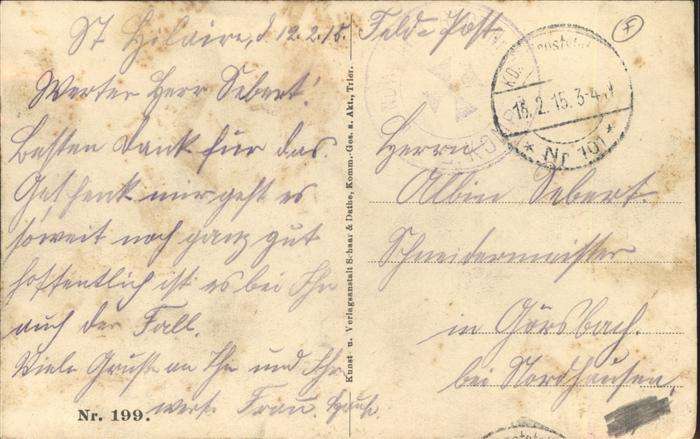 St Hilaire, d. 12.2.15.
Werter Herr Sebert!
Besten Dank für das
Geschenk mir geht es
soweit noch ganz gut
hoffentlich ist es bei Ihn
auch der Fall.
Viele Grüße an Ihn und Ihr
werte Frau.
Nr. 199.
Kunst- u. Verlagsanstalt Schaar & Dathe, Komm.-Ges. a. Akt., Trier.
Feld-Post
15.2.15. 3-4
* Nr 101 *
Herrn
Albin Sebert.
Schneidermeister
in Görsbach.
bei Nordhausen.